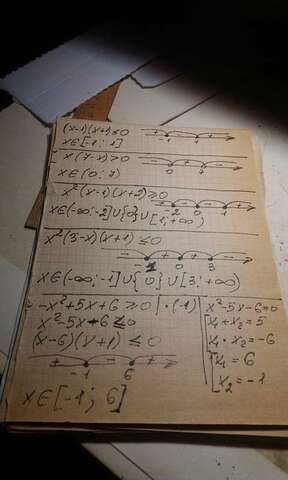 (x-1)(x+1)≤0
- 1 1
x∈[-1; 1]
x(7-x)>0
- + -
0 7
x∈(0; 7)
x²(x-1)(x+2)≥0
+ - - +
-2 0 1
x∈(-∞;-2]∪{0}∪[1;+∞)
x²(3-x)(x+1)≤0
- + + -
0 3
x∈(-∞;-1]∪{0}∪[3;+∞)
-x²+5x+6≥0 | ·(-1)
x²-5x-6≤0
(x-6)(x+1)≤0
+ - +
-1 6
x∈[-1; 6]
x²-5x-6=0
x₁+x₂=5
x₁·x₂=-6
x₁=6
x₂=-1